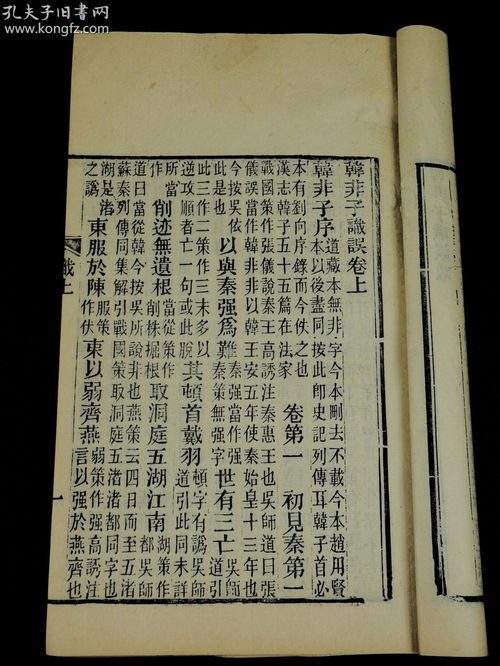 孔夫子旧书网
www.kongfz.com
韓非子識誤卷上
韓非子序道藏本無非字今本刪去不載今本趙用賢
本以後盡同按此卽史記列傳耳韓子首必
本有劉向序錄而今佚之也
漢志韓子五十五篇在法家
卷第一　初見秦第一
戰國策作張儀說秦王高誘注秦惠王也吳師道曰張
儀誤當作韓非非以韓王安五年使秦始皇十三年也
今按吳依
此是也
以與秦强爲難秦强當作强
秦策無强字
世有三亡吳師
道引
此三作二策作三末多以
逆攻順者亡一句或此脫
其頓首戴羽頓字有譌吳師
道引此同未詳
所當
作
削迹無遺根當從策作
削株掘根
取洞庭五湖江南湖策作
都吳師
道曰當從韓今按吳所說非也燕策云四日而至五渚
蘇秦列傳同集解引戰國策取洞庭五渚渚都同字也
湖是渚
之譌
東服於陳服策
作伏
東以弱齊燕弱策作强高誘注
言以强於燕齊也
識上
一